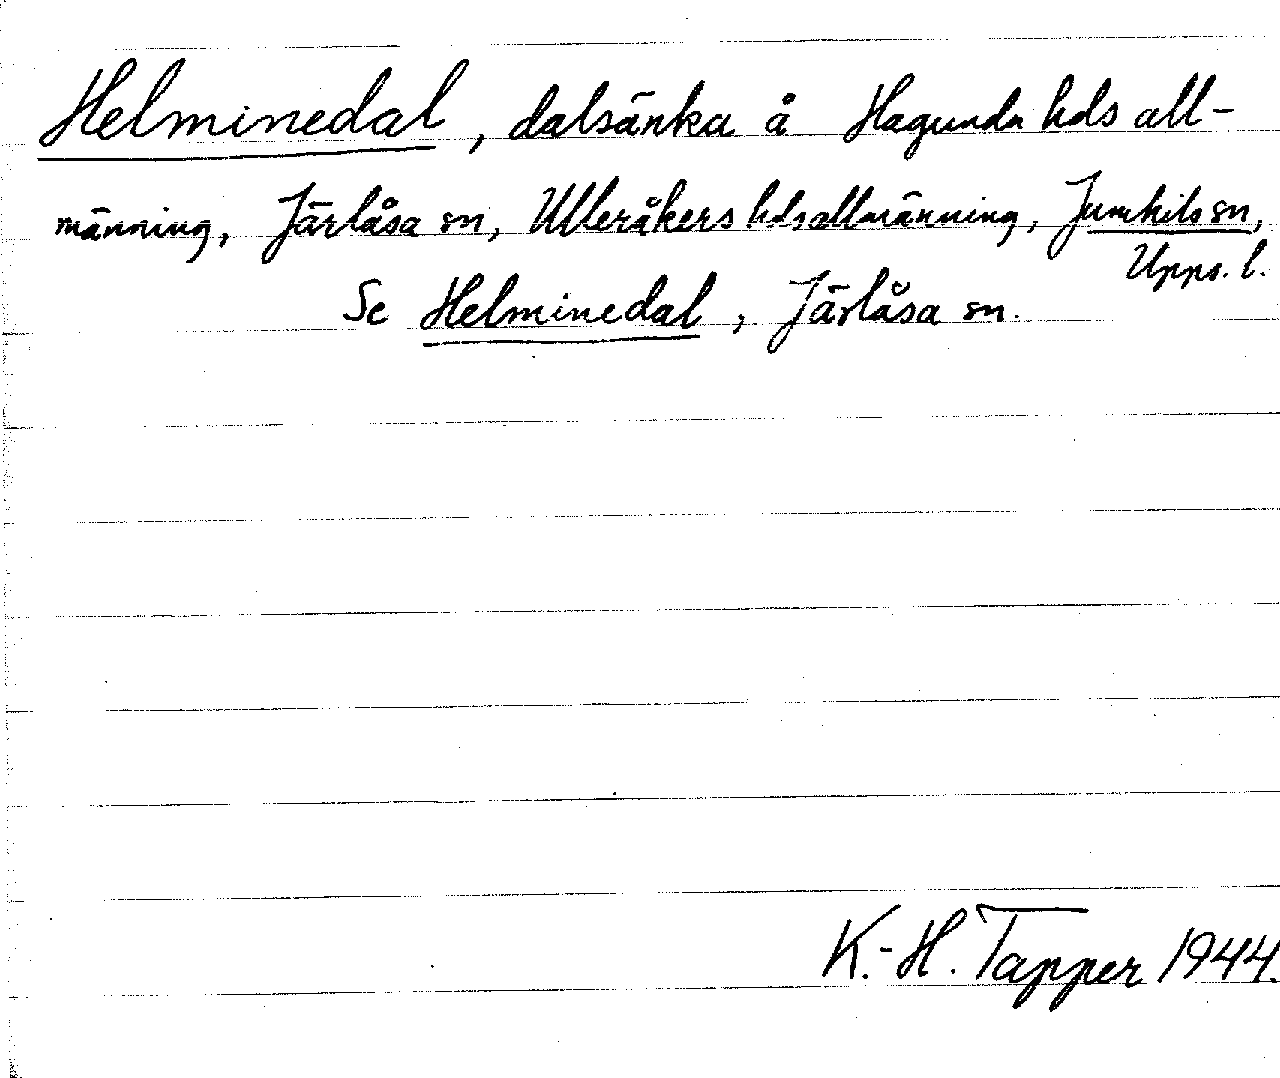 Helminedal, dalsänka å Hagunda hds all-
männing, Järlåsa sn, Ulleråkers hdsallmänning, Jumkils sn,
Upps. l.
Se Helminedal, Järlåsa sn.
K.-H. Tapper 1944.